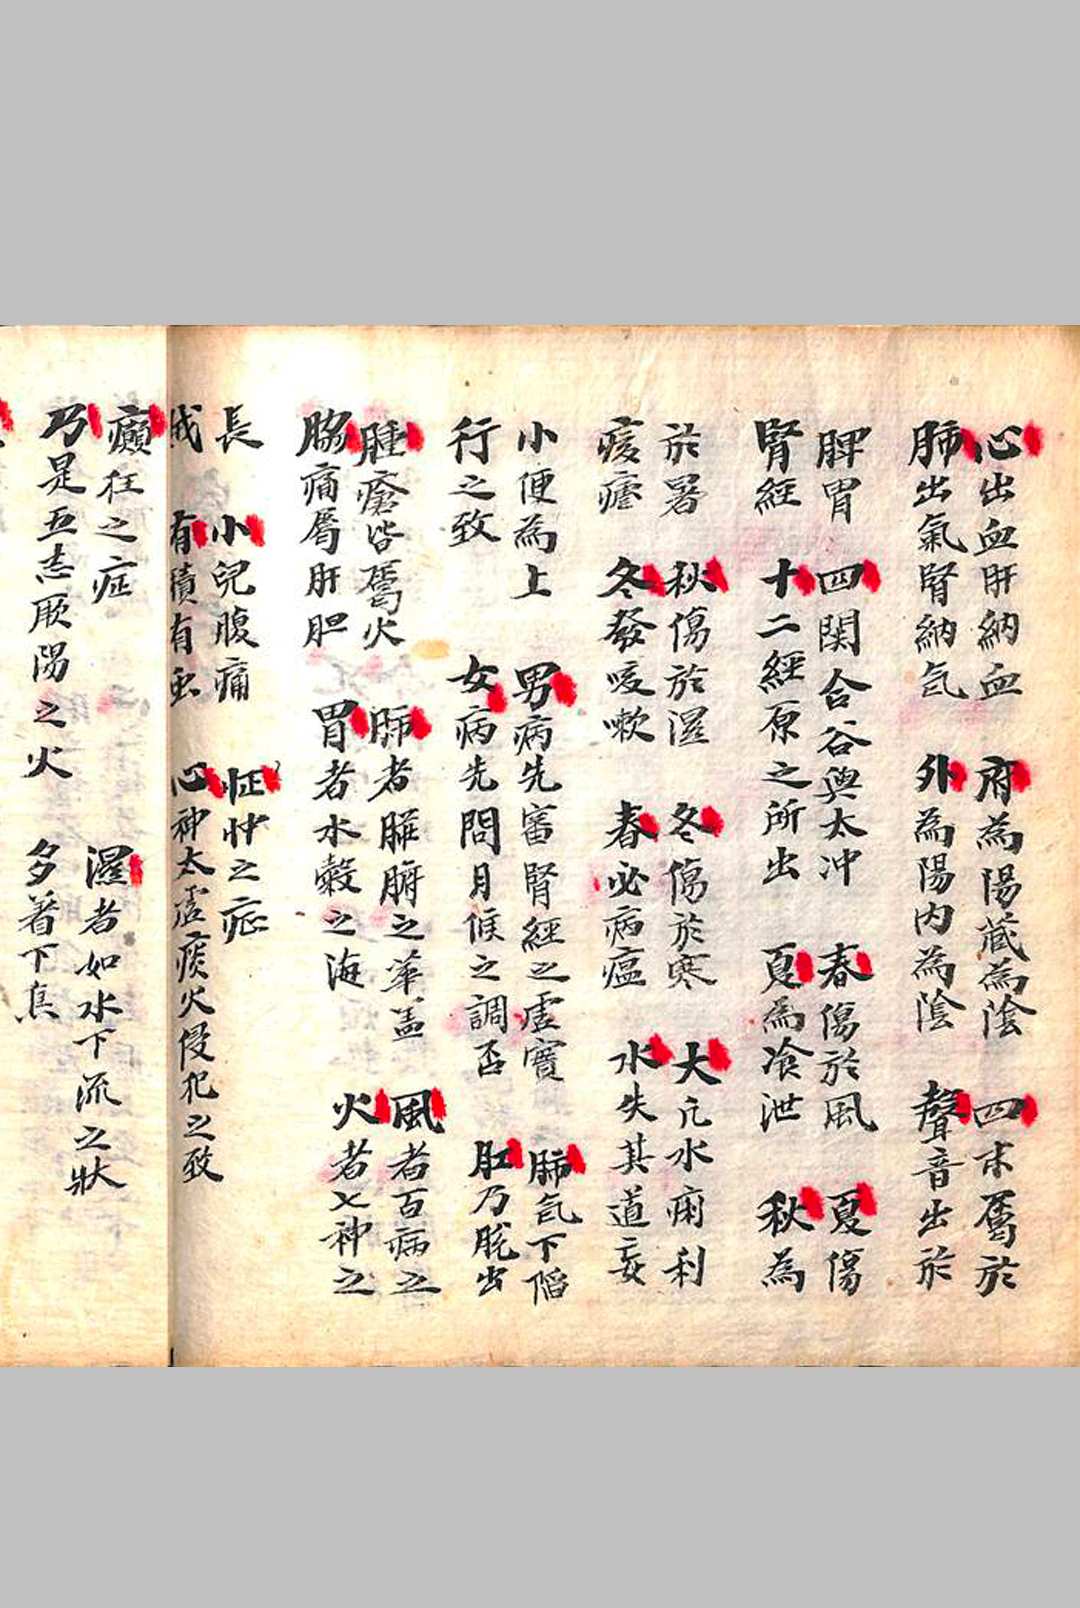 心出血肝納血　府為陽藏為陰　四末屬於
肺出氣腎納气　外為陽內為陰　聲音出於
脾胃　四関合谷與太冲　春傷於風　夏傷
腎經　十二經原之所出　夏為飧泄　秋為
於暑　秋傷於濕　冬傷於寒　大凡水痢利
痎瘧　冬發咳嗽　春必病瘟　水失其道妄
小便為上　男病先審腎經之虛實　肺气下陷
行之致　女病先問月候之調否　肛乃脫出
腫瘡皆屬火　肺者臟腑之華盖　風者百病之
脇痛屬肝胆　胃者水穀之海　火者七神之
長　小兒腹痛　怔忡之症
戕　有積有虫　心神太虛痰火侵犯之致
癲狂之症　濕者如水下流之狀
乃是五志厥陽之火　多著下焦